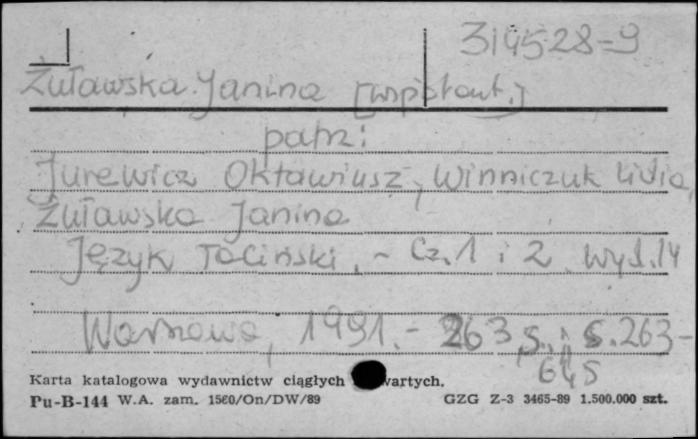 314528-9
Żuławska Janina [współaut.]
patrz:
Jurewicz Oktawiusz, Winniczuk Lidia,
Żuławska Janina
Język łaciński. - Cz. 1 i 2. Wyd. 14
Warszawa, 1991. - 263 s. ; s. 263-
645
Karta katalogowa wydawnictw ciągłych wartych.
Pu-B-144 W.A. zam. 1560/On/DW/89 GZG Z-3 3465-89 1.500.000 szt.